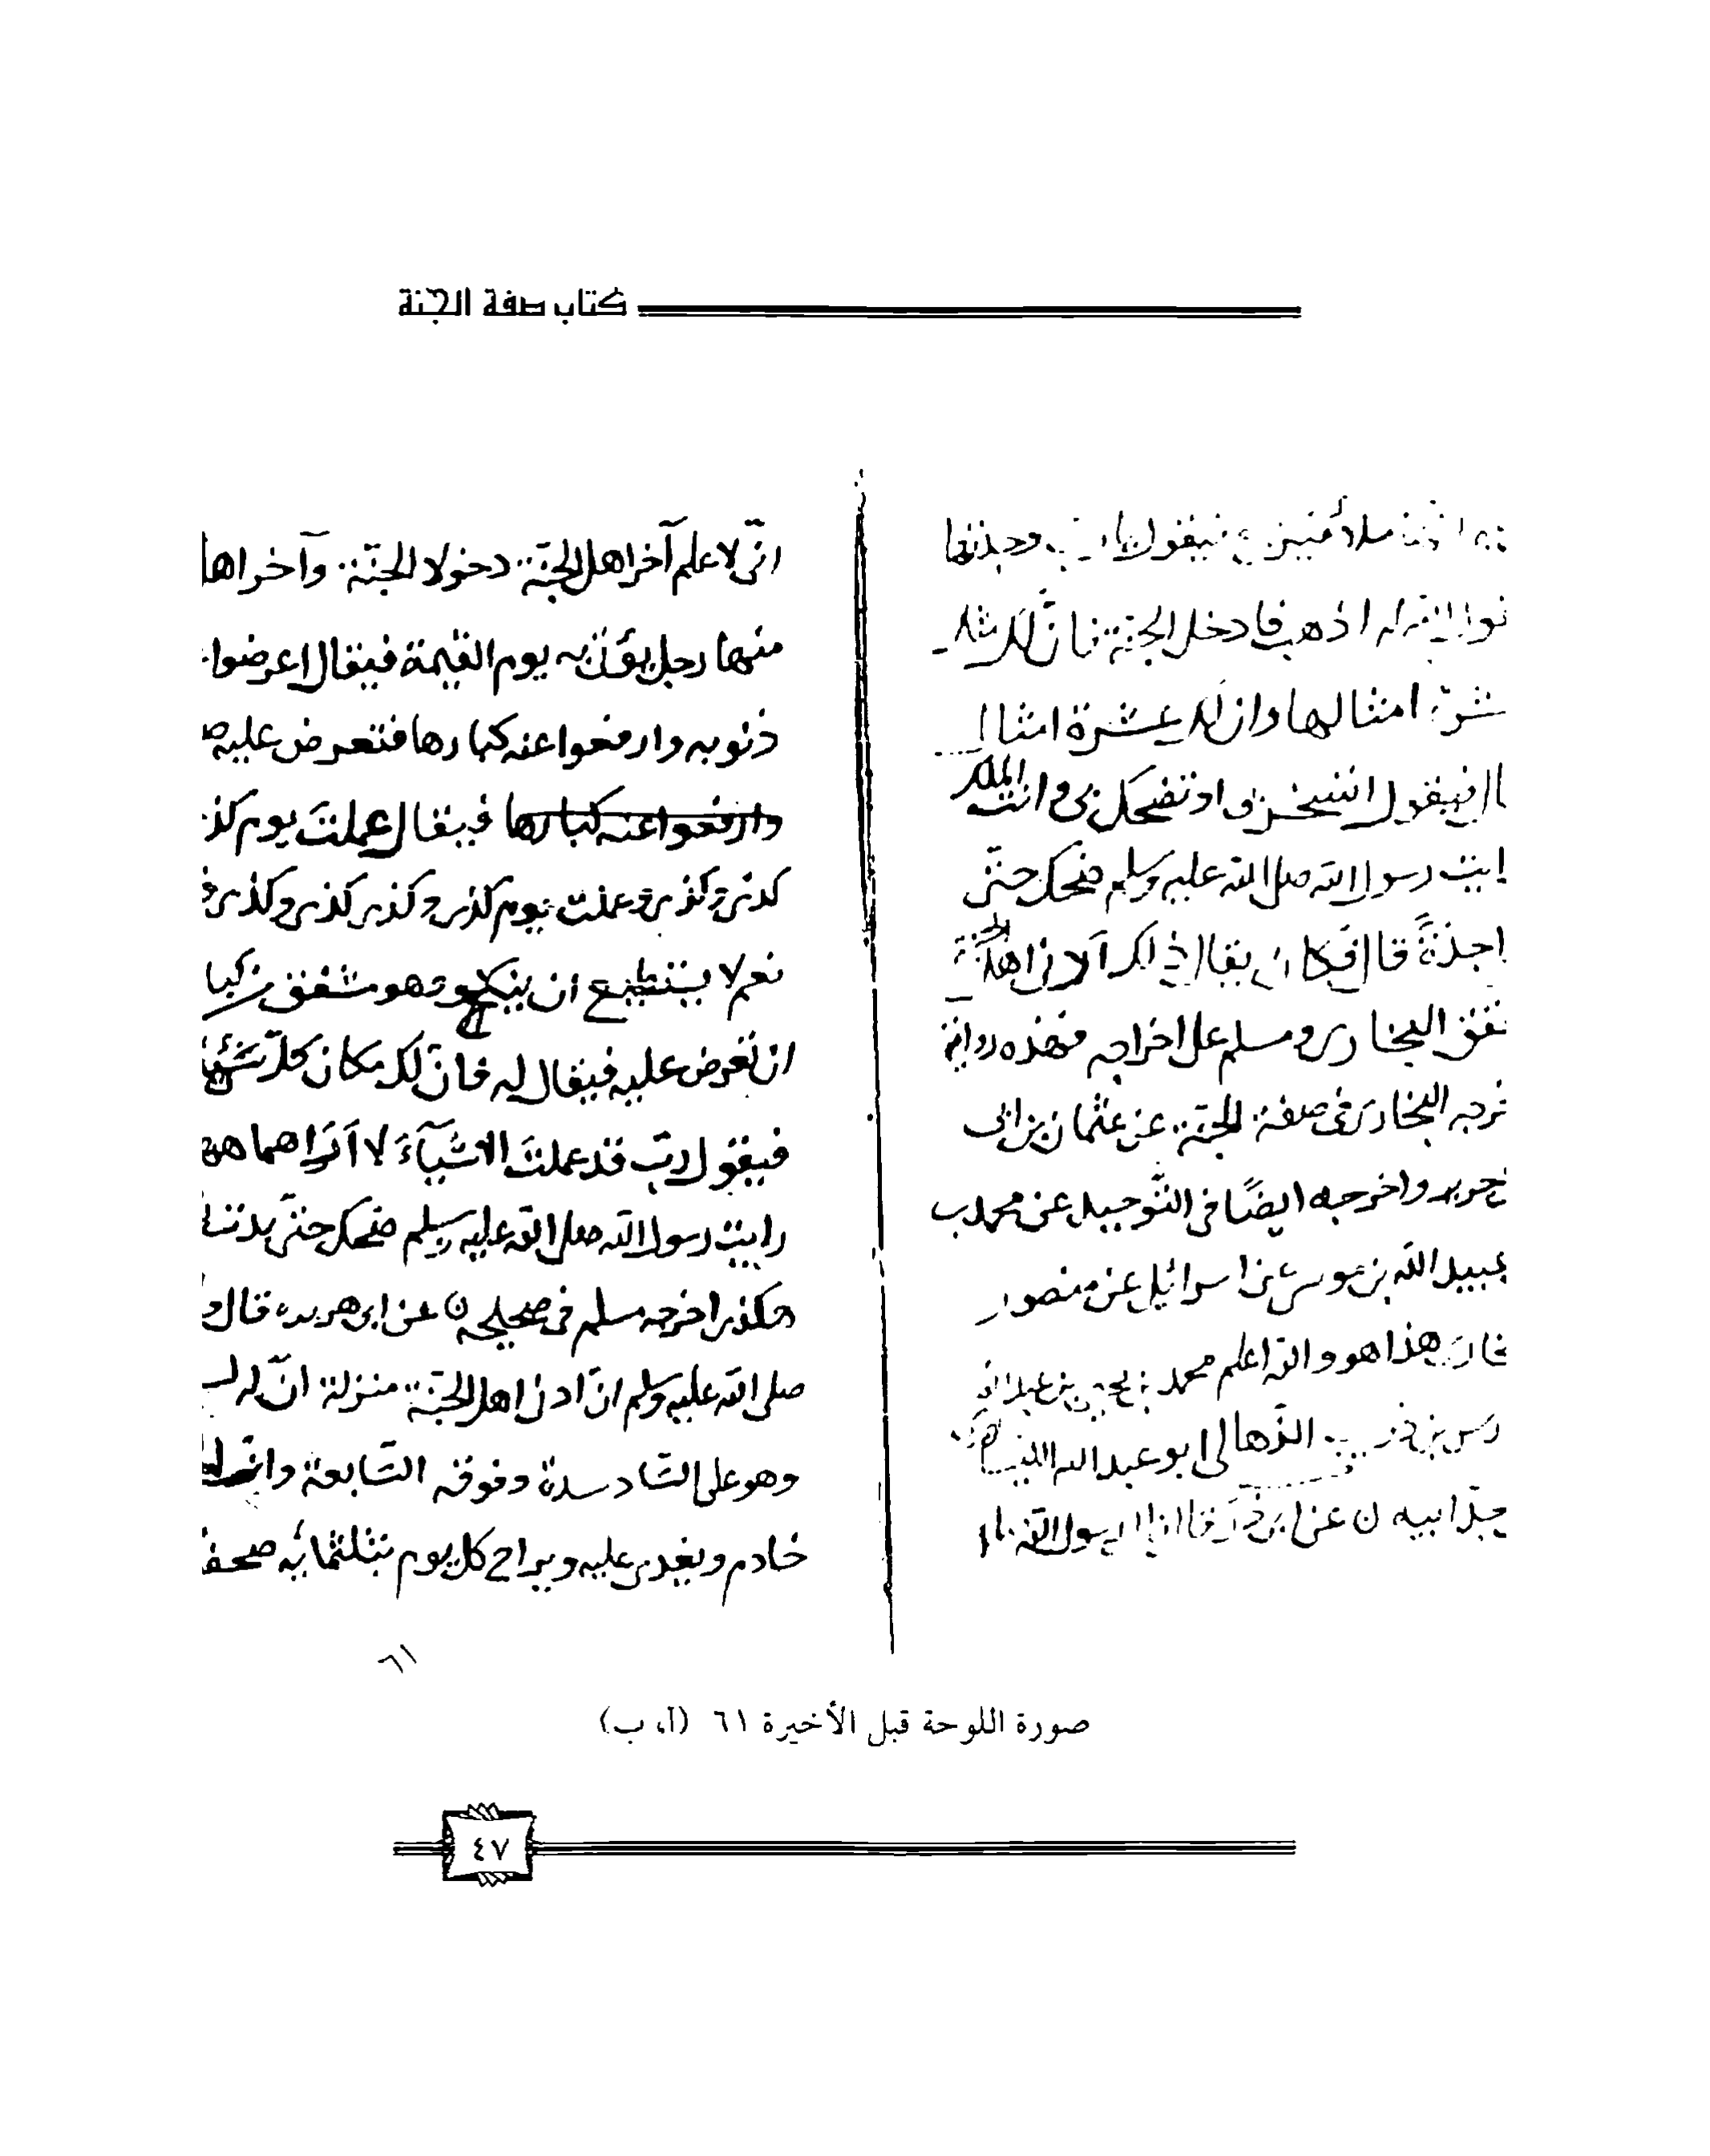 كتاب صفة الجنة
ملأى فيرجع فيقول يا رب وجدتها
اذهب فادخل الجنة فان لك مثل
عشرة امثالها وان لك عشرة امثال
فيقول اتسخر بى او تضحك بى وانت الملك
رايت رسول الله صلى الله عليه وسلم ضحك حتى
قال فكان يقال ذاك ادنى اهل الجنة
البخارى ومسلم على اخراجه فهذه رواية
البخارى فى صفة الجنة عن عثمان بن ابى
جرير واخرجه ايضًا فى التوحيد عن محمد ب
عبيد الله بن موسى عن اسرائيل عن منصور
هذا هو والله اعلم محمد بن يحيى بن عبد الله
الذهالى ابو عبد الله
ابيه ن عن ابى ذر قال قال رسول الله
انى لاعلم آخر اهل الجنة دخولا الجنة وآخر اهل
منها رجل يؤتى به يوم القيمة فيقال اعرضوا
ذنوبه وارفعوا عنه كبارها فتعرض عليه
وارفعوا عنه كبارها فيقال عملت يوم كذى
كذى وكذى وعملت يوم كذى وكذى كذى وكذى
نعم لا يستطيع ان ينكر وهو مشفق من كبا
ان تعرض عليه فيقال له فان لك مكان كل سيئة
فيقول رب قد عملت اشيآءَ لا اَرَاها هاهنا
رايت رسول الله صلى الله عليه وسلم ضحك حتى بدت
هكذى اخرجه مسلم فى صحيحه ن عن ابى هريرة قال
صلى الله عليه وسلم ان ادنى اهل الجنة منزلة ان له
وهو على السادسة وفوقه السابعة وان له
خادم ويغدى عليه ويراح كل يوم بثلثمائه صحفة
٦١
صورة اللوحة قبل الأخيرة ٦١ (أ، ب)
٤٧